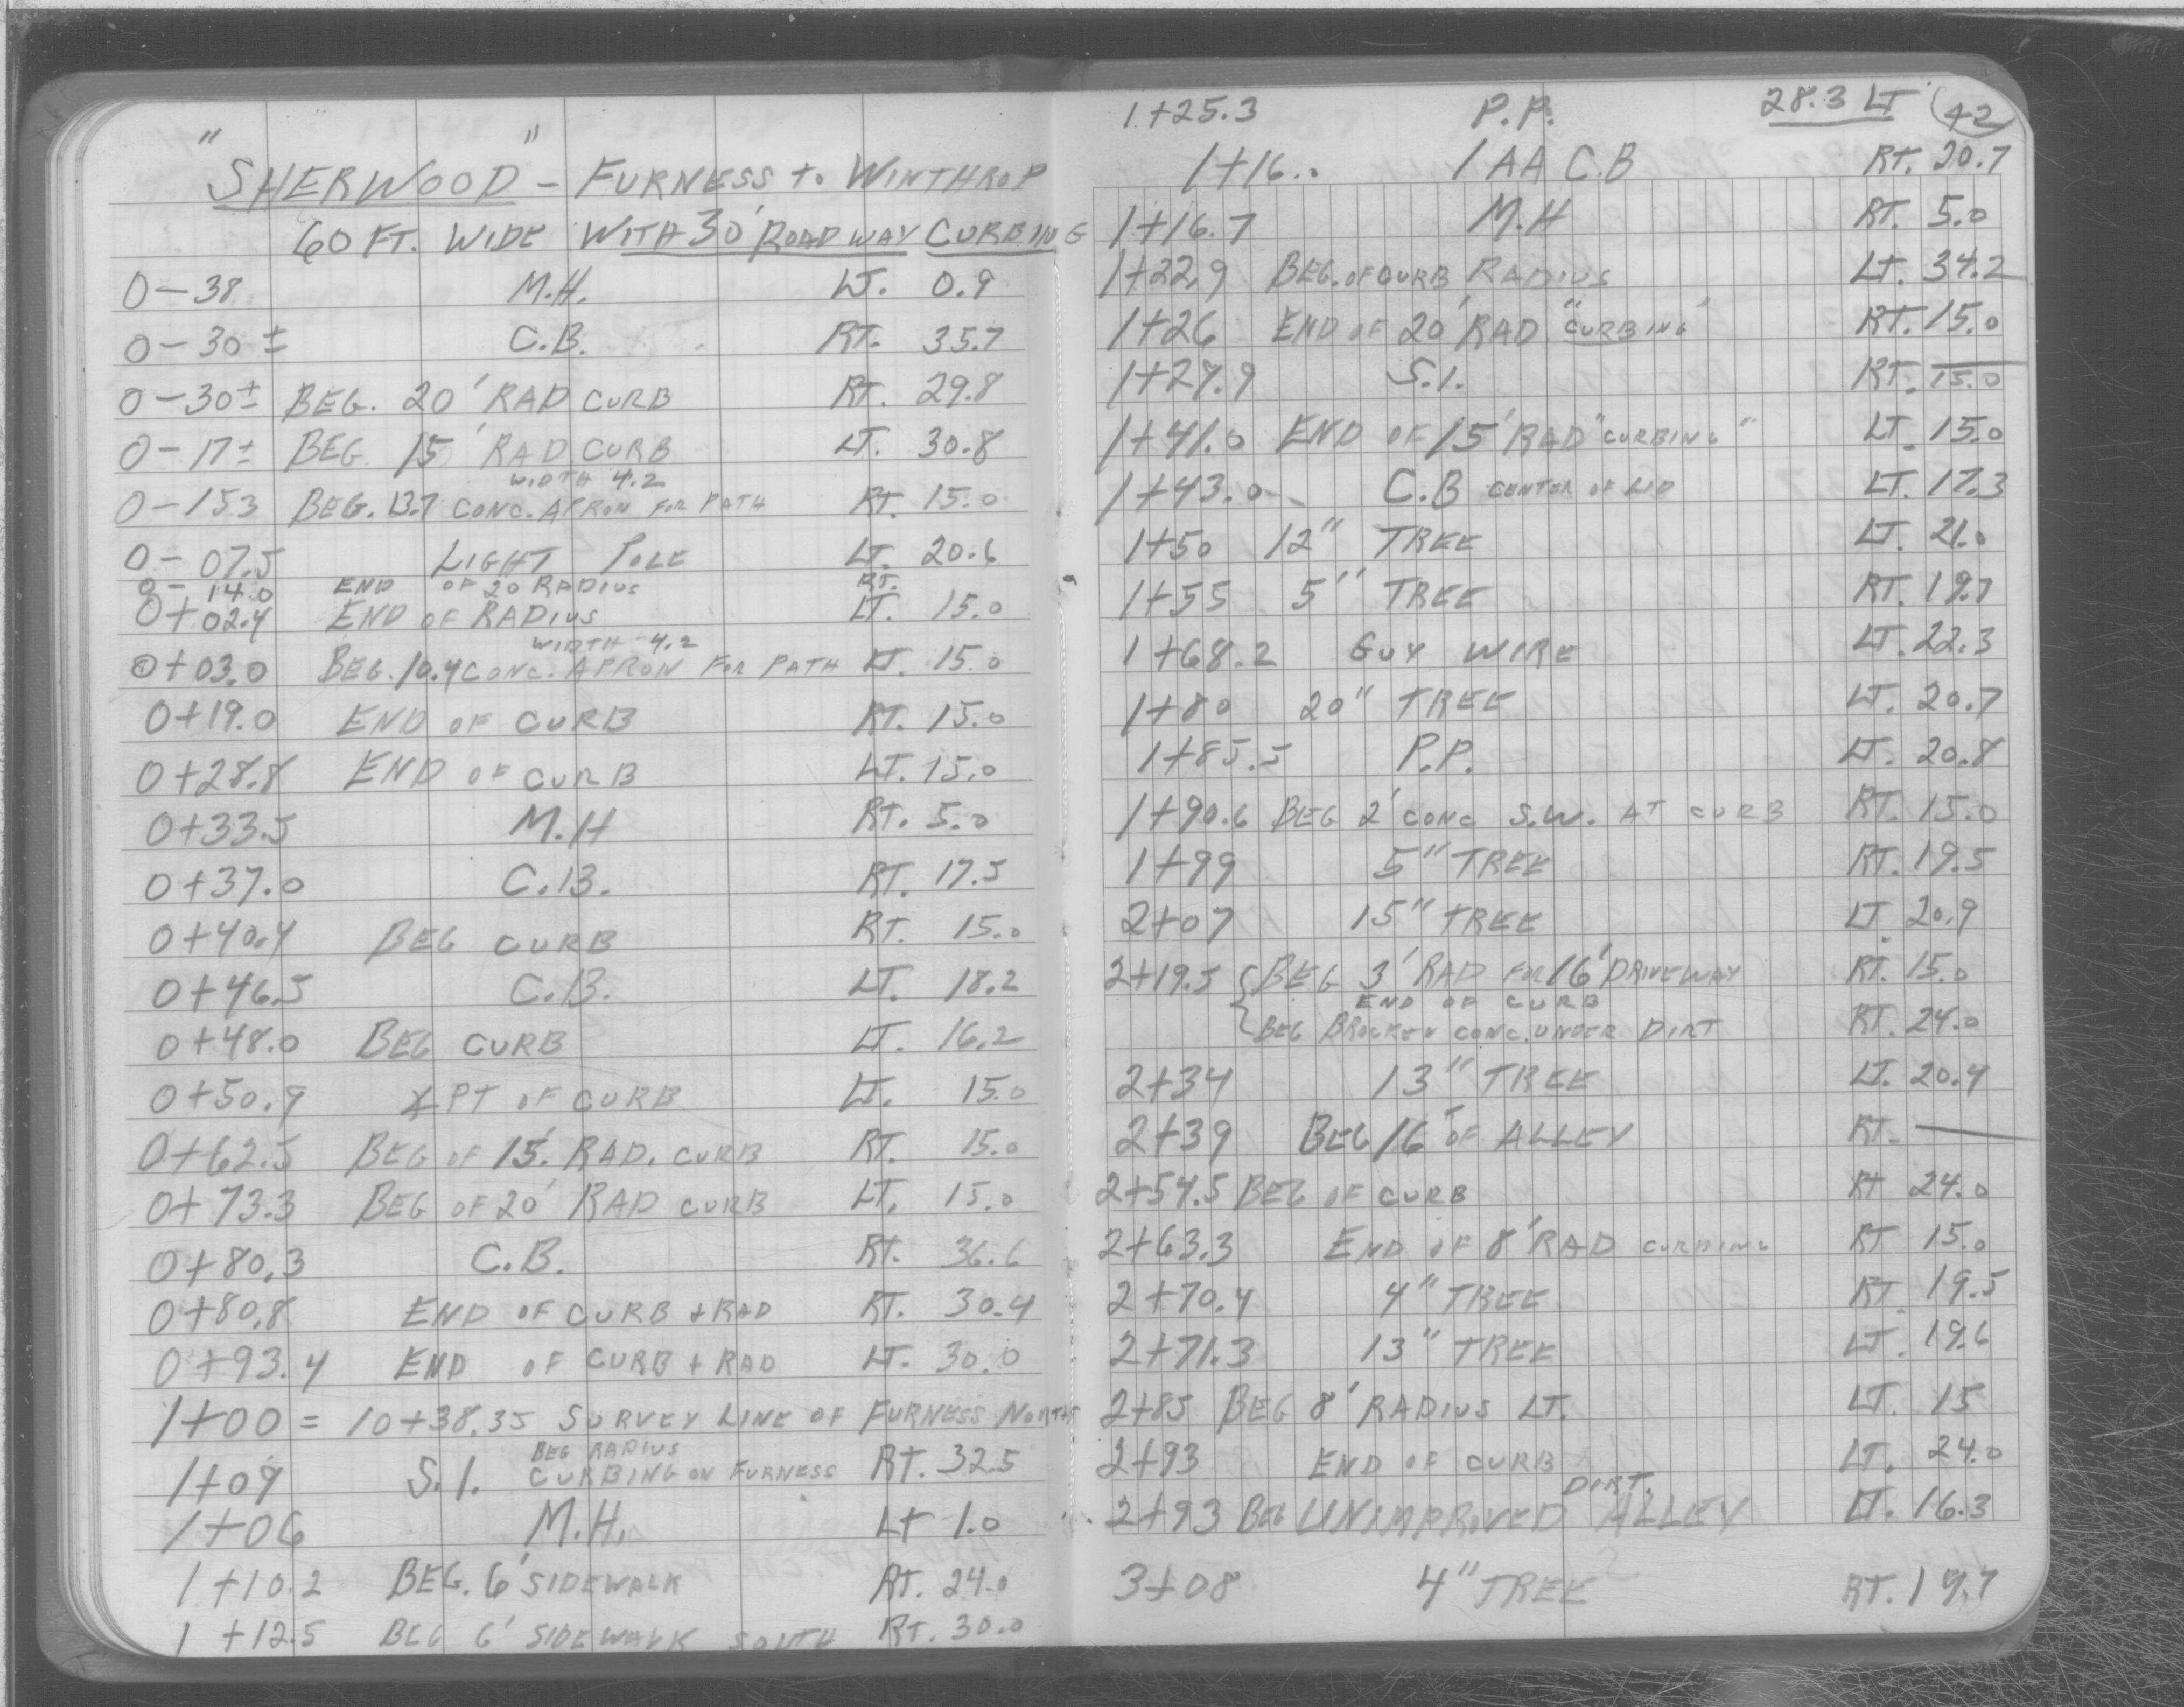 "SHERWOOD" - FURNESS to WINTHROP
60 FT. WIDE WITH 30' ROADWAY CURBING
0-38 M.H. LT. 0.9
0-30 ± C.B. RT. 35.7
0-30± BEG. 20' RAD CURB RT. 29.8
0-17± BEG 15' RAD CURB LT. 30.8
WIDTH 4.2
0-15.3 BEG. 13.7 CONC. APRON FOR PATH RT. 15.0
0-07.5 LIGHT POLE LT. 20.6
0-14.0 END OF 20 RADIUS RT.
0+02.4 END OF RADIUS LT. 15.0
WIDTH 4.2
0+03.0 BEG. 10.4 CONC. APRON FOR PATH LT. 15.0
0+19.0 END OF CURB RT. 15.0
0+28.8 END OF CURB LT. 15.0
0+33.5 M.H RT. 5.0
0+37.0 C.B. RT. 17.5
0+40.4 BEG CURB RT. 15.0
0+46.5 C.B. LT. 18.2
0+48.0 BEG CURB LT. 16.2
0+50.9 ∠ PT OF CURB LT. 15.0
0+62.5 BEG OF 15' RAD. CURB RT. 15.0
0+73.3 BEG OF 20' RAD CURB LT. 15.0
0+80.3 C.B. RT. 36.6
0+80.8 END OF CURB + RAD RT. 30.4
0+93.4 END OF CURB + RAD LT. 30.0
1+00 = 10+38.35 SURVEY LINE OF FURNESS NORTH
BEG RADIUS
1+04 S.I. CURBING ON FURNESS RT. 32.5
1+06 M.H. LT 1.0
1+10.2 BEG. 6' SIDEWALK RT. 24.0
1+12.5 BEG 6' SIDEWALK SOUTH RT. 30.0
1+25.3 P.P. 28.3 LT 42
1+16.. 1 AA C.B RT. 20.7
1+16.7 M.H RT. 5.0
1+22.9 BEG. OF CURB RADIUS LT. 34.2
1+26 END OF 20' RAD "CURBING" RT. 15.0
1+27.9 S.I. RT. 15.0
1+41.0 END OF 15' RAD "CURBING" LT. 15.0
1+43.0 C.B CENTER OF LID LT. 17.3
1+50 12" TREE LT. 21.0
1+55 5" TREE RT. 19.7
1+68.2 GUY WIRE LT. 22.3
1+80 20" TREE LT. 20.7
1+85.5 P.P. LT. 20.8
1+90.6 BEG 2' CONC S.W. AT CURB RT. 15.0
1+99 5" TREE RT. 19.5
2+07 15" TREE LT. 20.9
2+19.5 { BEG 3' RAD FOR 16' DRIVEWAY RT. 15.0
END OF CURB
{ BEG BROCKEN CONC. UNDER DIRT RT. 24.0
2+34 13" TREE LT. 20.4
2+39 BEG 16' OF ALLEY RT. —
2+54.5 BEG OF CURB RT 24.0
2+63.3 END OF 8' RAD CURBING RT 15.0
2+70.4 4" TREE RT. 19.5
2+71.3 13" TREE LT. 19.6
2+85 BEG 8' RADIUS LT. LT. 15
2+93 END OF CURB LT. 24.0
DIRT.
2+93 BEG UNIMPROVED ALLEY LT. 16.3
3+08 4" TREE RT. 19.7